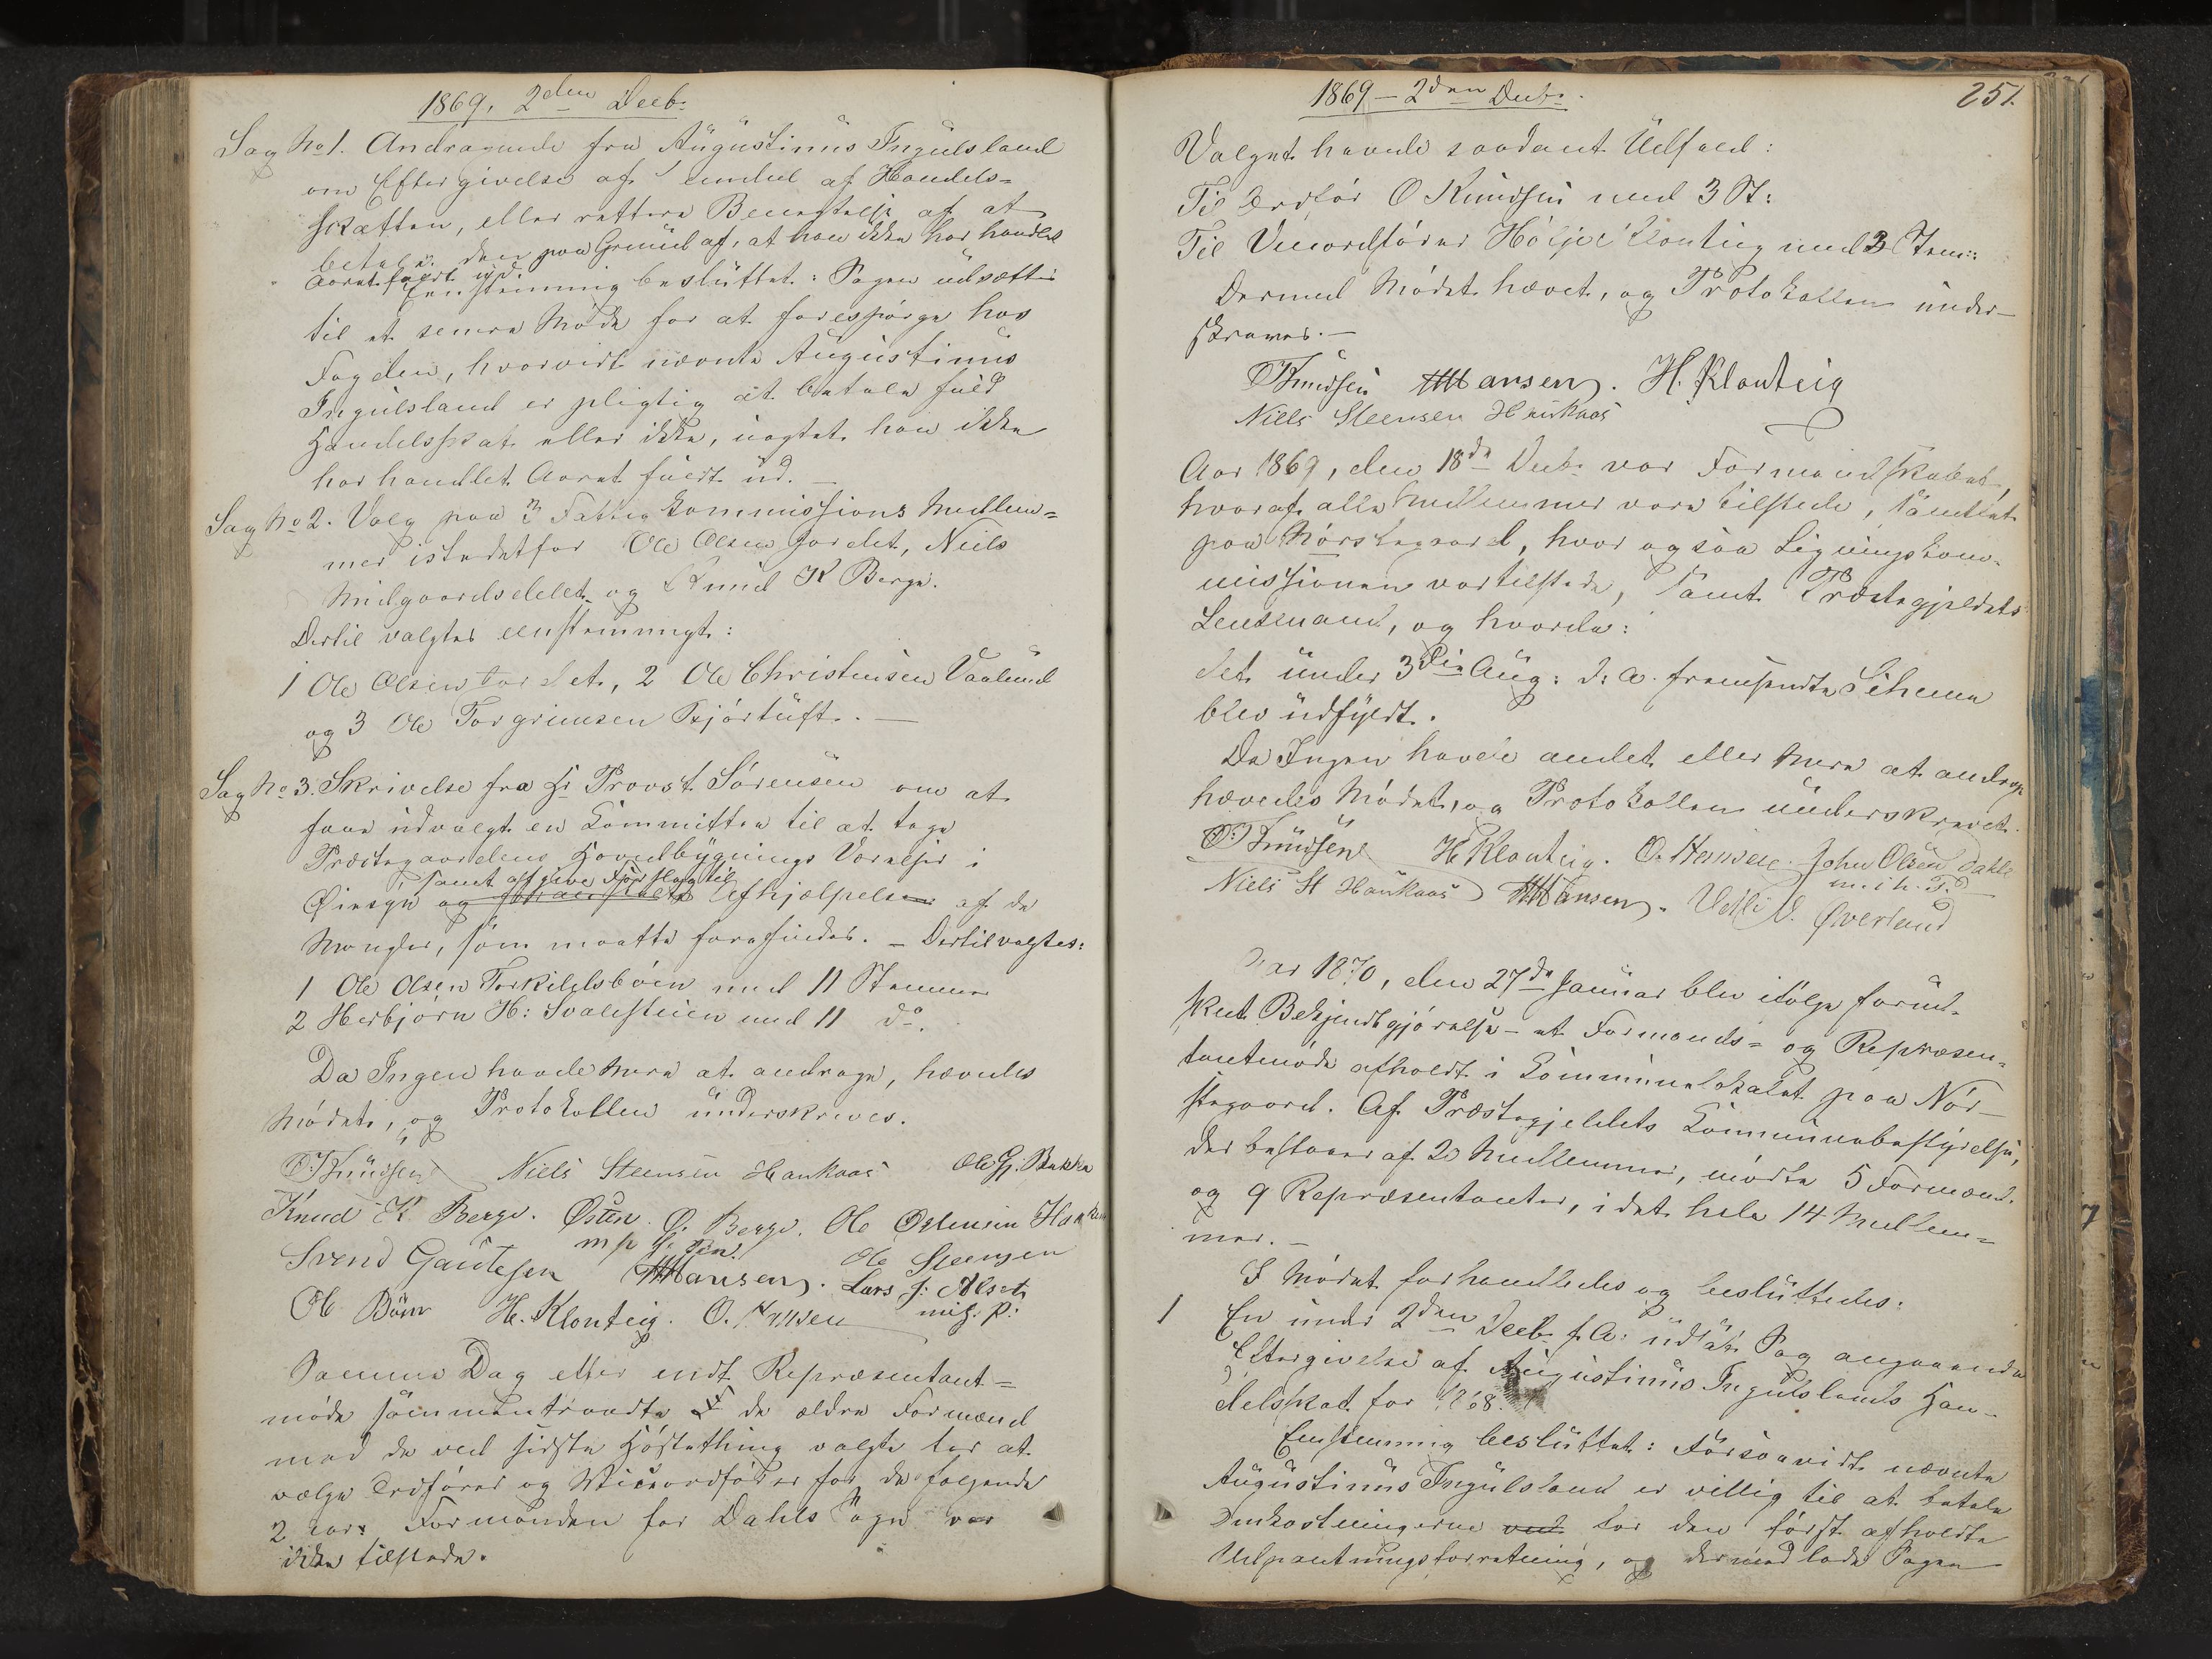 1869, 2den Decb:
Sag No 1. Andragende fra Augustinus Ingulsland
om Eftergivelse af endel af Handels=
skatten, eller rettere Benægtelse af at
betale den paa Grund af, at han ikke har handlet
Aaret fuldt ud.
Eenstemmig besluttet: Sagen udsættes
til et senere Møde for at forespørge hos
Fogden, hvorvidt nævnte Augustinus
Ingulsland er pligtig at betale fuld
Handelsskat eller ikke, uagtet han ikke
har handlet Aaret fuldt ud. —
Sag No 2. Valg paa 3 Fattigkommissions Medlem=
mer istedetfor Ole Olsen Jordet, Niels
Midgaardsdelet og Knud K Berge.
Dertil valgtes eenstemmigt:
1 Ole Olsen Jordet, 2 Ole Christensen Vaalund
og 3 Ole Torgrimsen Kjörtuft. —
Sag No 3. Skrivelse fra Hr Provst Sörensen om at
faae udvalgt en Committee til at tage
Præstegaardens Hovedbygnings Værelser i
samt afgive Forslag til
Øiesyn og Afhjælpelse af de
Mangler, som maatte forefindes. — Dertil valgtes:
1 Ole Olsen Torkildsböen med 11 Stemmer
2 Herbjörn H: Svalesteien med 11 do.
Da Ingen havde mere at andrage, hævedes
Mödet, og Protokollen underskreves.
O Knudsen Niels Steensen Haukaas Ole G. Bakka
Knud K Berge. Østen Ø. Berge. Ole Østensen
m p Pen.
Svend Gautesen HHansen. Ole Steensen
Lars J:
Ole Böen H. Klonteig. O. Hansen
Samme Dag efter endt Repræsentant=
möde sammentraadte de ældre Formænd
med de ved sidste Hösttething valgte for at
vælge Ordförer og Viceordförer for de folgende
2 Aar. Formanden for Dahls Sogn var
ikke tilstede.
1869 — 2den Decb:
251.
Valget havde saadant Udfald:
Til Ordför O Knudsen med 3 St:
Til Viceordförer Höljer Klonteig med 3 Stem:
Dermed Mödet hævet, og Protokollen under—
skreves. —
OKnudsen HHansen. H. Klonteig
Niels Steensen Haukaas
Aar 1869, den 18de Decb: var Formandskabet,
hvoraf alle Medlemmer vare tilstede, samlet
paa Nörstegaard, hvor ogsaa Ligningskom-
missionen var tilstede, samt Præstegjeldets
Lensmand, og hvorda:
det under 3die Aug: d: A. fremsendte Schema
blev udfyldt.
Da Ingen havde andet eller mere at andrage
hævedes Mödet, og Protokollen underskrevet.
O Knudsen H Klonteig. O. Hansen. John Olsen Dahle
m. i h. P.
Niels St Haukaas HHansen. Øverland
Aar 1870, den 27de Januar blev ifölge forud-
skeet Bekjendtgjörelse — et Formands= og Repræsen-
tantmöde afholdt i Communelokalet paa Nör—
stegaard. Af Præstegjeldets Communebestyrelse,
der bestaaer af 20 Medlemmer, mödte 5 Formænd
og 9 Repræsentanter, i det hele 14 Medlem=
mer. —
I Mödet forhandledes og besluttedes:
1 En under 2den Decb. f. A: udsat Sag angaaende
Eftergivelse af Augustinus Ingulslands Han-
delsskat for 1868.
Eenstemmig besluttet: Forsaavidt nævnte
Augustinus Ingulsland er villig til at betale
Omkostningerne ved for den först afholdte
Udpantningsforretning, og dermed lade Sagen